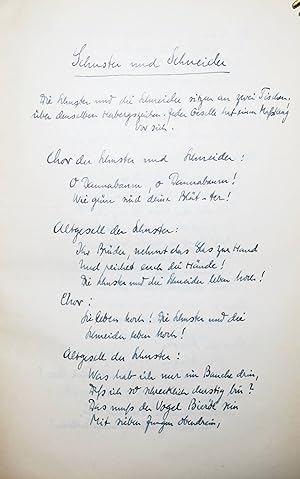 Schuster und Schneider
Die Schuster und die Schneider sitzen an zwei Tischen,
über denselben Herbergszeichen. Jeder Geselle hat einen Maßkrug
vor sich.
Chor der Schuster und Schneider:
O Dannabaum, o Dannabaum!
Wie grün sind deine Blät-ter!
Altgesell der Schuster:
Ihr Brüder, nehmt das Glas zur Hand
Und reichet euch die Hände!
Die Schuster und die Schneider leben hoch!
Chor:
Sie leben hoch! Die Schuster und die
Schneider leben hoch!
Altgesell der Schuster:
Was hab ich nur im Bauche drin,
Daß ich so schrecklich durstig bin?
Das muß der Vogel Bierdt sein
Mit sieben Zungen obendrein,